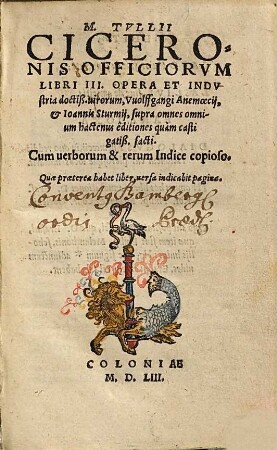 M. TVLLII
CICERO-
NIS OFFICIORVM
LIBRI III. OPERA ET INDV-
stria doctiß. uirorum, Vuolffgangi Anemœcij,
& Ioannis Sturmij, supra omnes omni
um hactenus éditiones quàm casti
gatiß. facti.
Cum uerborum & rerum Indice copioso.
Quæ præterea habet liber, uersa indicabit pagina.
Conventq Bamberg
ordis
COLONIAE
M. D. LIII.